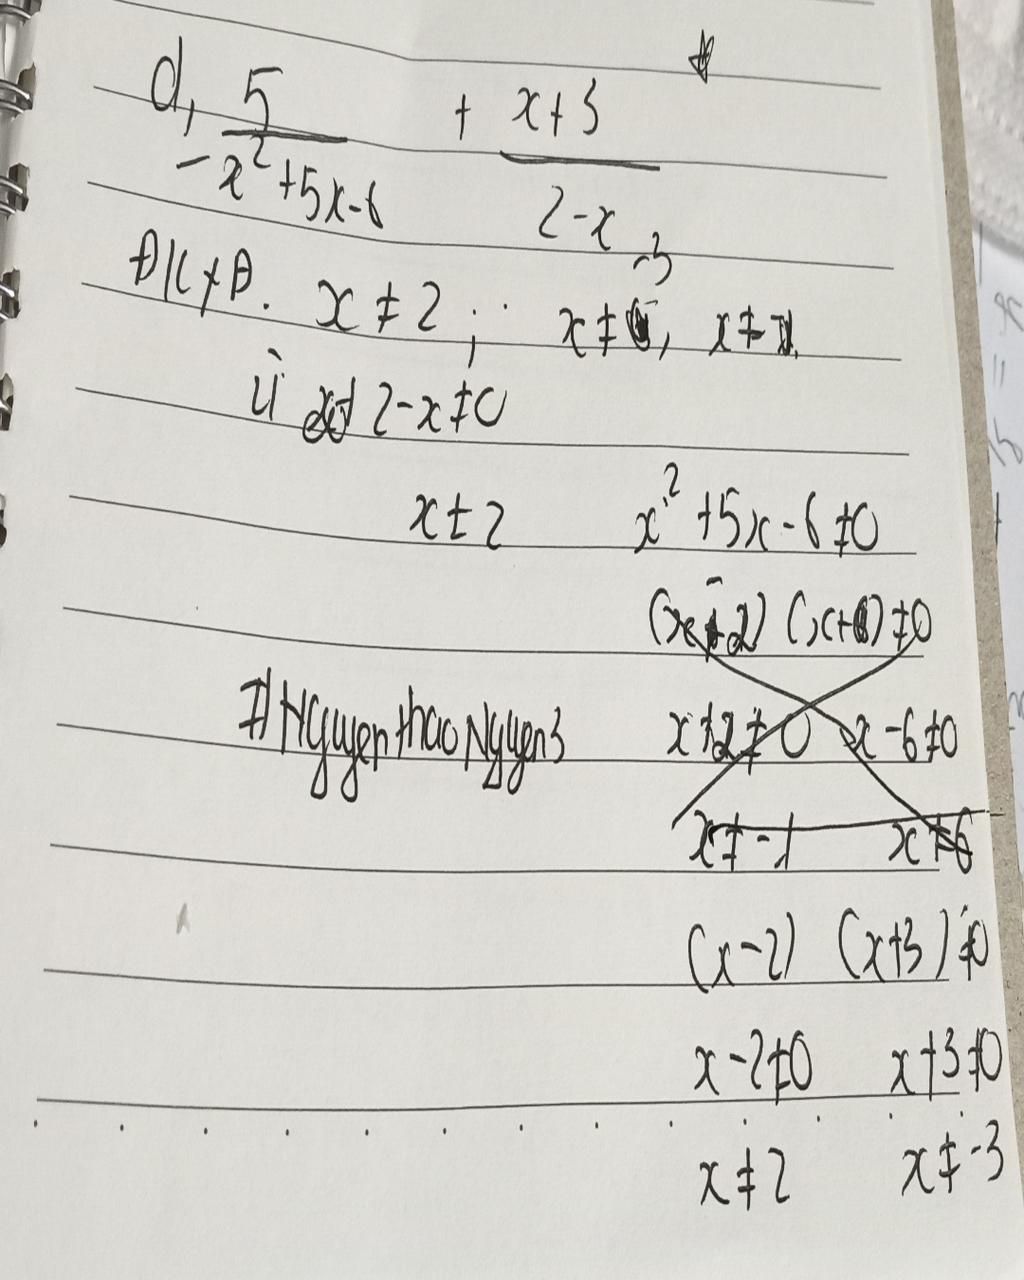 d, 5 + x+3
-x²+5x-6 2-x
ĐKXĐ. x ≠ 2 ; x ≠ -3, x ≠
2-x ≠ 0
x ± 2 x²+5x-6 ≠ 0
(x-2) (x+6) ≠ 0
#NguyenthaoNguyen3 x+2 ≠ 0 x-6 ≠ 0
x ≠ -1 x ≠ 6
(x-2) (x+3) ≠ 0
x-2 ≠ 0 x+3 ≠ 0
x ≠ 2 x ≠ -3